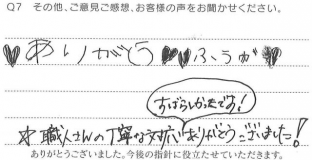 Q7 その他、ご意見ご感想、お客様の声をお聞かせください。
♥ありがとう♥ふうが♥
すばらしかったです!
☆職人さんの丁寧な対応ありがとうございました!
ありがとうございました。今後の指針に役立たせていただきます。